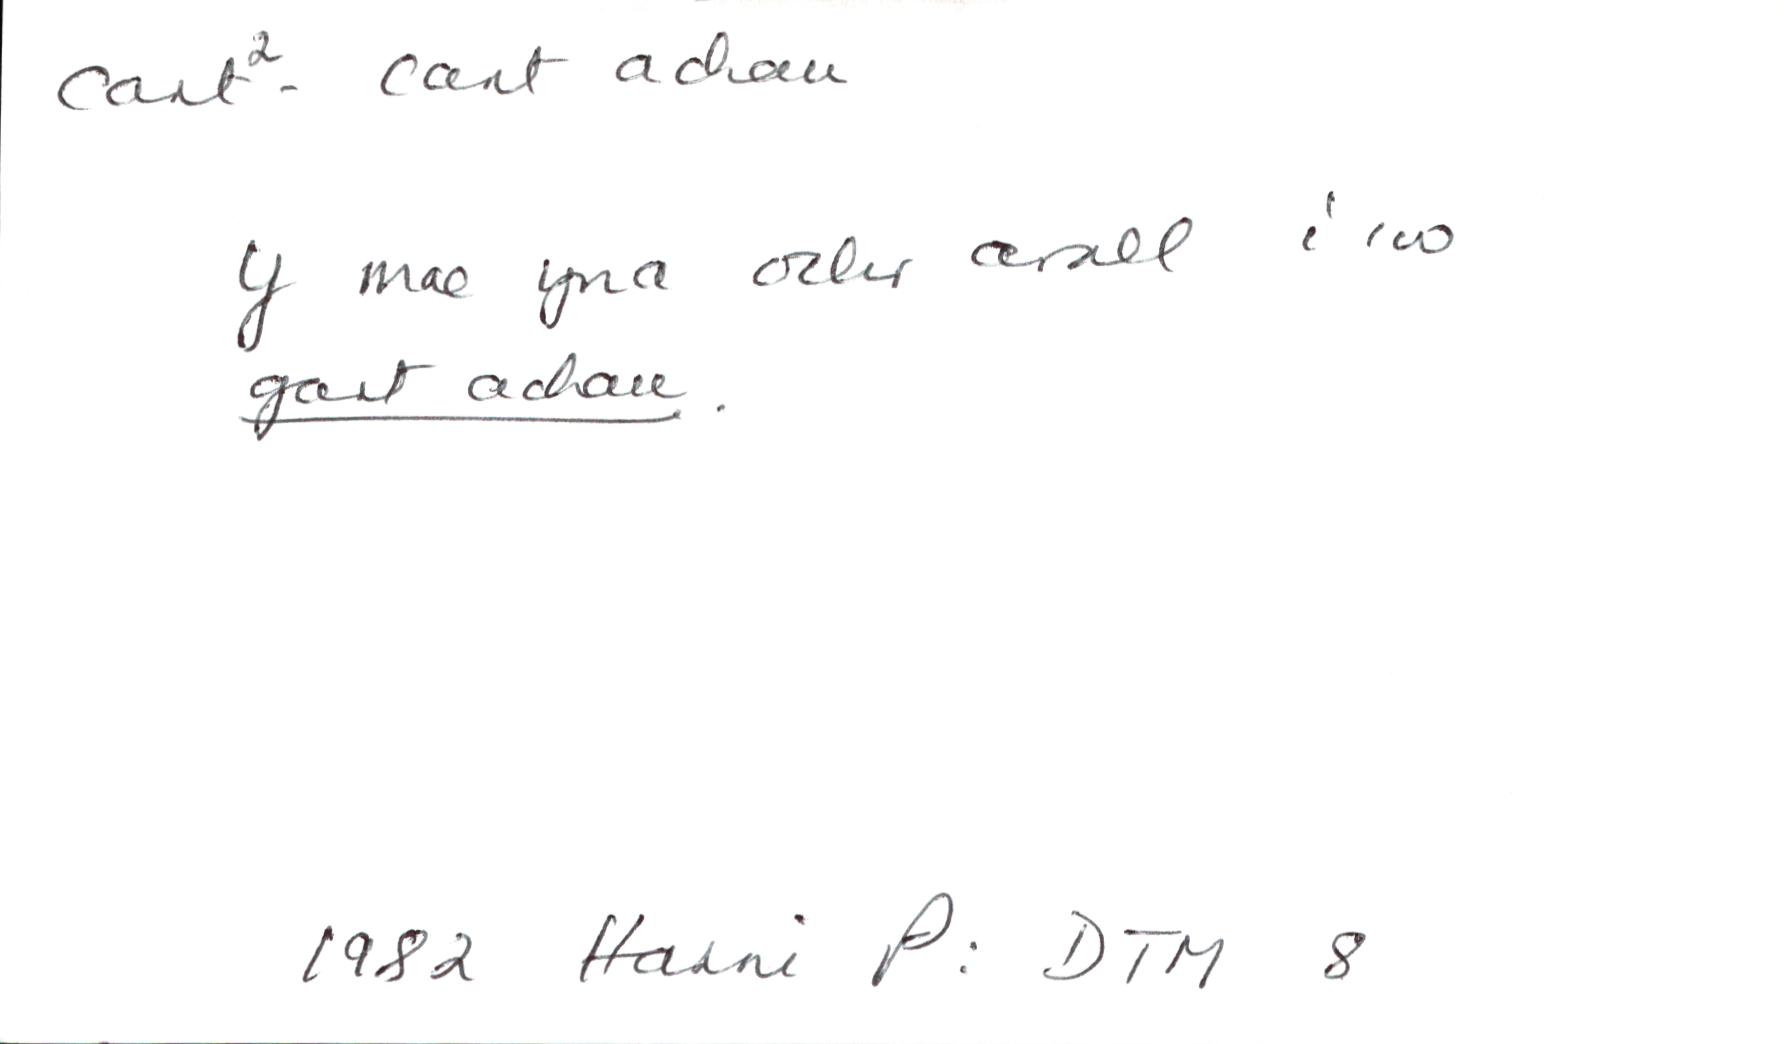 cart² - cart achau
Y mae yna ochr arall i'w
gart achau.
1982 Harri P: DTM 8